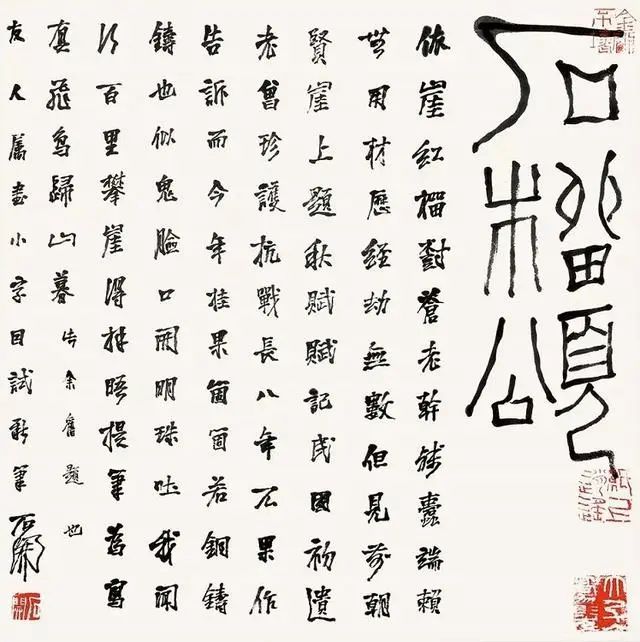 石榴頌
依崖紅榴對蒼老幹殘蠹端賴
無用材歷經劫無數但見前朝
賢崖上題秋賦賦記民國初遺
老曾珍護抗戰長八年不果作
告訴而今年挂果箇箇若銅鑄
鑄也似鬼臉口開明珠吐我聞
行百里攀崖得拜晤提筆為寫
真飛鳥歸山暮此余舊題也
友人屬書小字因試新筆石開